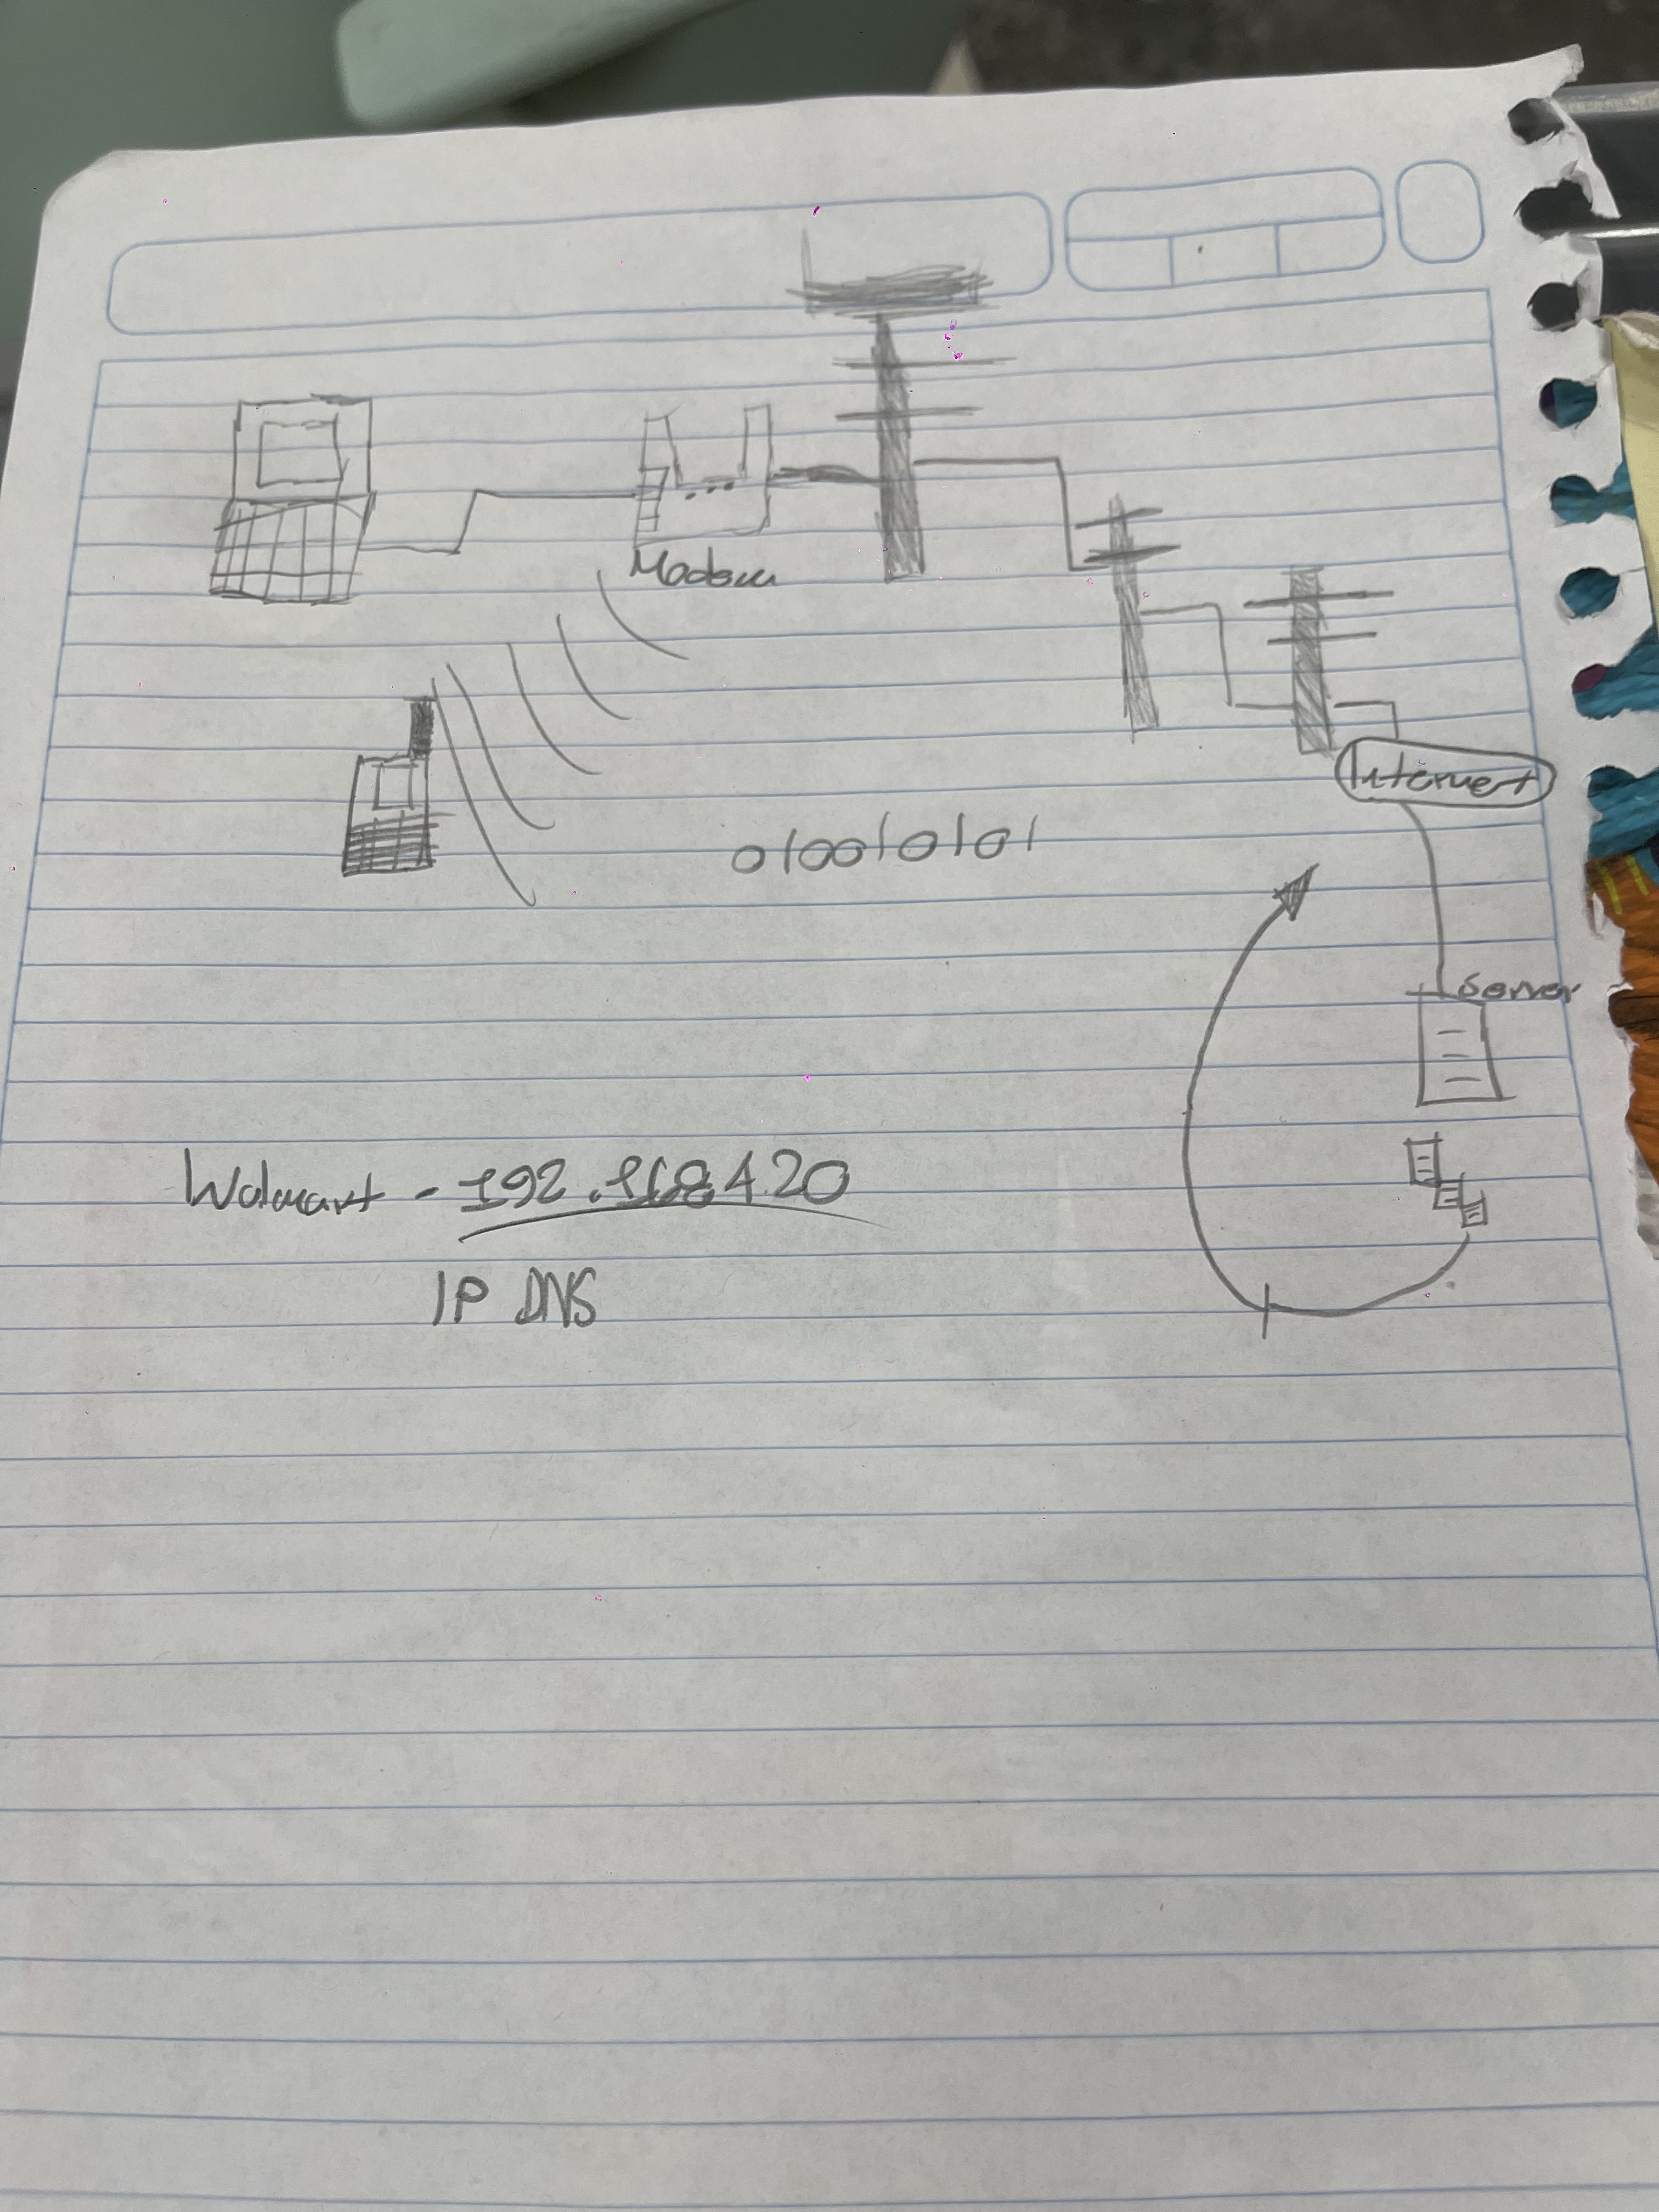 Modem
Internet
010010101
Server
Walmart - 192.168.4.20
IP DNS